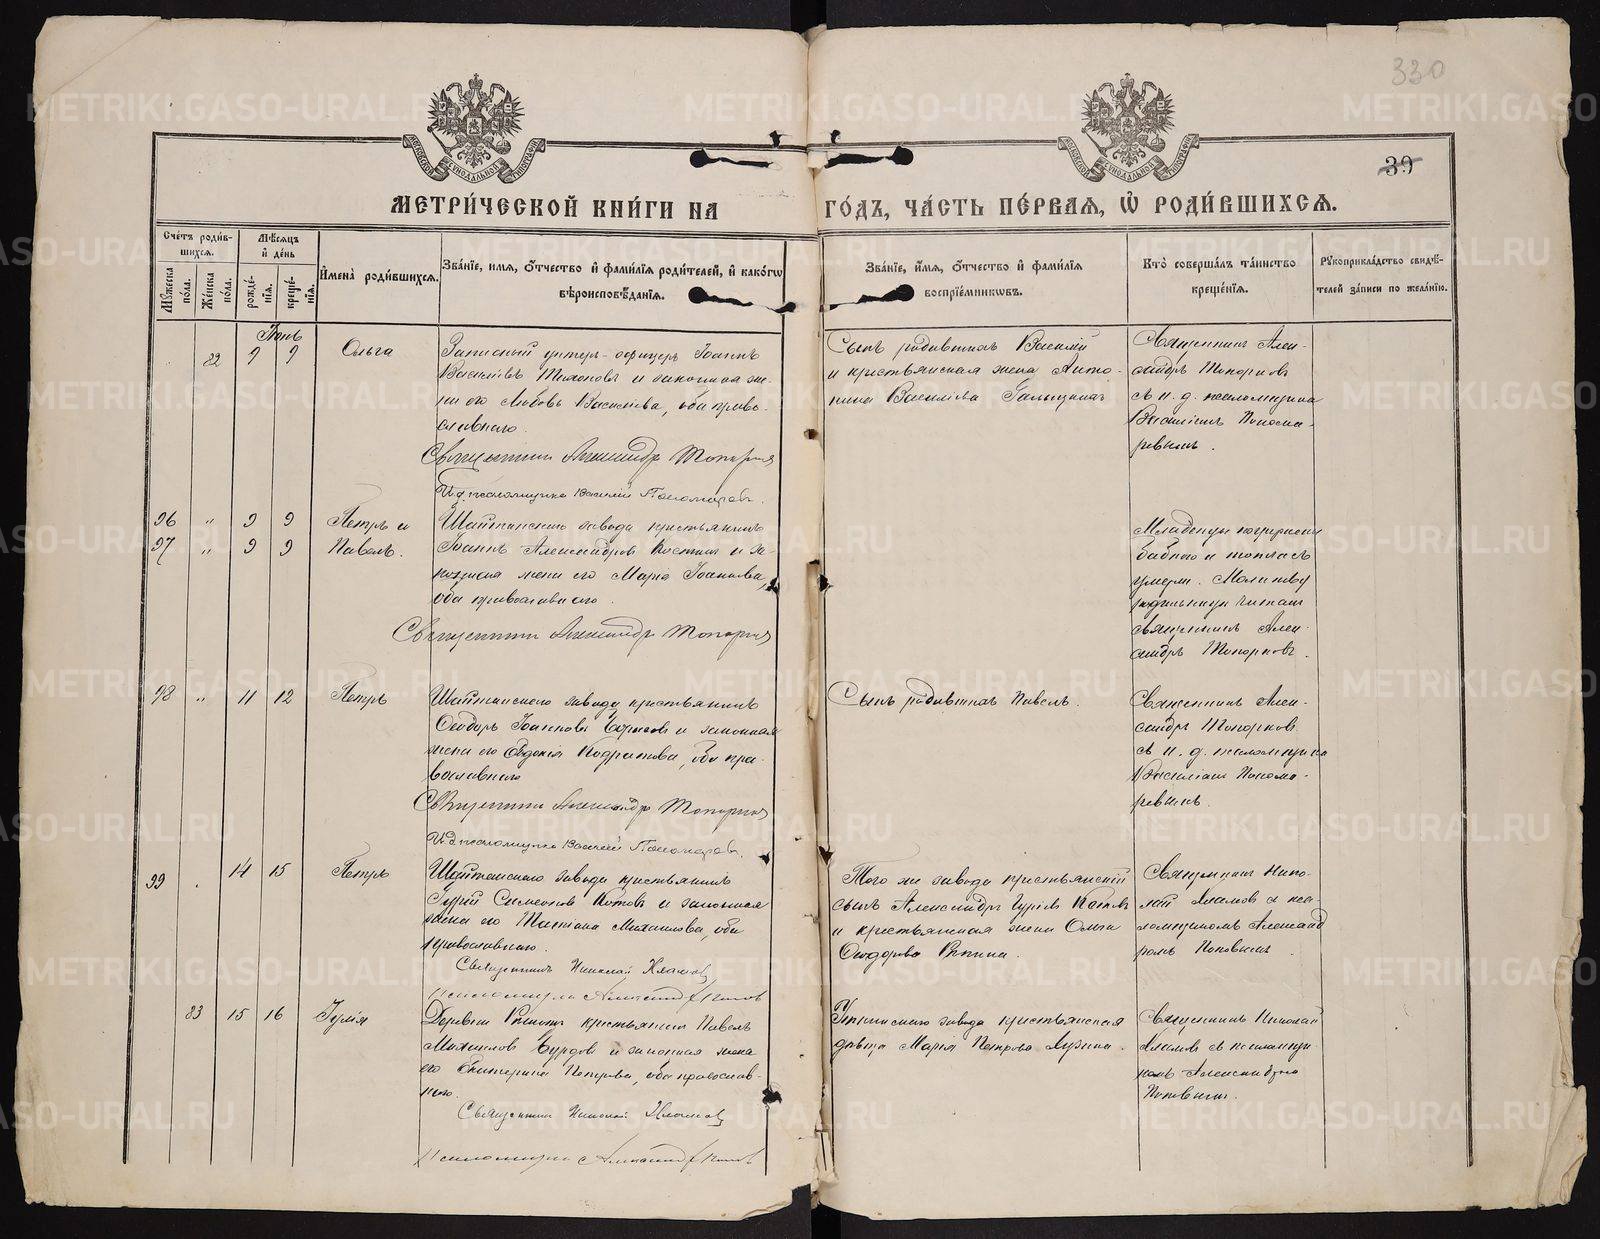 330
39
МЕТРИ́ЧЕСКОЙ КНИ́ГИ НА ГО́ДЪ, ЧА́СТЬ ПЕ́РВАЯ, Ѡ҆ РОДИ́ВШИХСѦ.
Сче́тъ роди́в-
шихсѧ.
Мѣ́сѧцъ
и҆ де́нь
Мꙋ́жеска по́ла.
Же́нска по́ла.
рожде́-
нїѧ.
креще́-
нїѧ.
И҆мена̀ роди́вшихсѧ.
Зва́нїе, и҆́мѧ, ѻ҆́тчество и҆ фами́лїѧ роди́телей, и҆ како́гѡ
вѣроисповѣ́данїѧ.
Зва́нїе, и҆́мѧ, ѻ҆́тчество и҆ фами́лїѧ
воспрїе́мникѡвъ.
Кто̀ соверша́лъ та́инство
креще́нїѧ.
Рꙋкоприкла́дство свидѣ́-
телей за́писи по жела́нїю.
Іюнь
82 9 9 Ольга
Запасный унтеръ-офицеръ Іоаннъ
Васильевъ Тихоновъ и законная же-
на его Любовь Васильева, оба право-
славнаго.
Священникъ Александръ Топорковъ
И.д. псаломщика Василій Пономаревъ.
Сынъ родившихъ Василій
и крестьянская жена Анто-
нина Васильева
Священникъ Алек-
сандръ Топорковъ
съ и. д. псаломщика
Василіемъ Понома-
ревымъ.
96 " 9 9 Петръ и
97 " 9 9 Павелъ.
Шайтанскаго завода крестьянинъ
Іоаннъ Александровъ Костинъ и за-
конная жена его Марія Іоаннова,
оба православнаго.
Священникъ Александръ Топорковъ
Младенцы погружены
бабкою и тотчасъ
умерли. Молитву
родильницѣ читалъ
священникъ Алек-
сандръ Топорковъ.
98 " 11 12 Петръ
Шайтанскаго завода крестьянинъ
Ѳеодоръ Іоанновъ и законная
жена его Евдокія Кодратова, оба пра-
вославнаго
Священникъ Александръ Топорковъ
И.д. псаломщика Василій Пономаревъ.
Сынъ родившихъ Павелъ.
Священникъ Алек-
сандръ Топорковъ
съ и. д. псаломщика
Василіемъ Понома-
ревымъ.
99 14 15 Петръ
Шайтанскаго завода крестьянинъ
Гурій Симеоновъ Котовъ и законная
жена его Татіана Михаилова, оба
православнаго.
Священникъ Николай Хламовъ
Псаломщикъ Александръ Поповъ
Того же завода крестьянскій
сынъ Александръ Гурьевъ Котовъ
и крестьянская жена Ольга
Ѳеодорова
Священникъ Нико-
лай Хламовъ съ пса-
ломщикомъ Александ
ромъ Поповымъ
83 15 16 Іулія
Деревни крестьянинъ Павелъ
Михаиловъ и законная жена
его Екатерина Петрова, оба православ-
наго.
Священникъ Николай Хламовъ
Псаломщикъ Александръ Поповъ
Уткинскаго завода крестьянская
дѣвица Марія Петрова
Священникъ Николай
Хламовъ съ псаломщи-
комъ Александромъ
Поповымъ.
METRIKI.GASO-URAL.RU